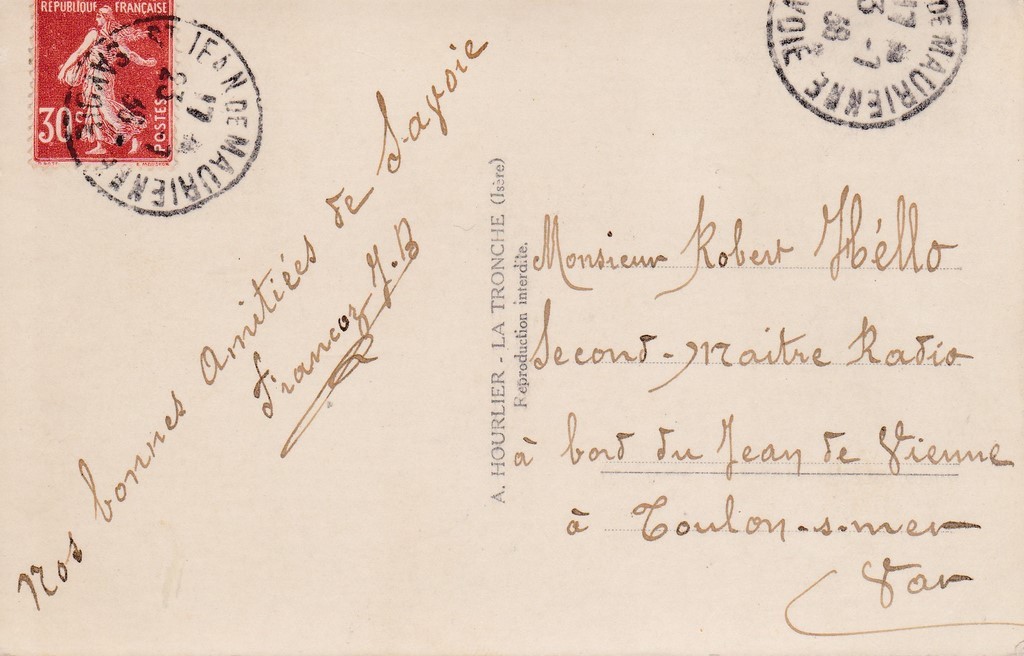 RÉPUBLIQUE FRANÇAISE
30c
POSTES
ST JEAN DE MAURIENNE
SAVOIE
17 *
23 - 7
38
DE MAURIENNE
VOIE
17 *
3 - 7
38
Nos bonnes amitiées de Savoie
Francoz J.B
A. HOURLIER - LA TRONCHE (Isère)
Reproduction interdite.
Monsieur Robert Héllo
Second-Maitre Radio
à bord du Jean de Vienne
à Toulon-s-mer
Var